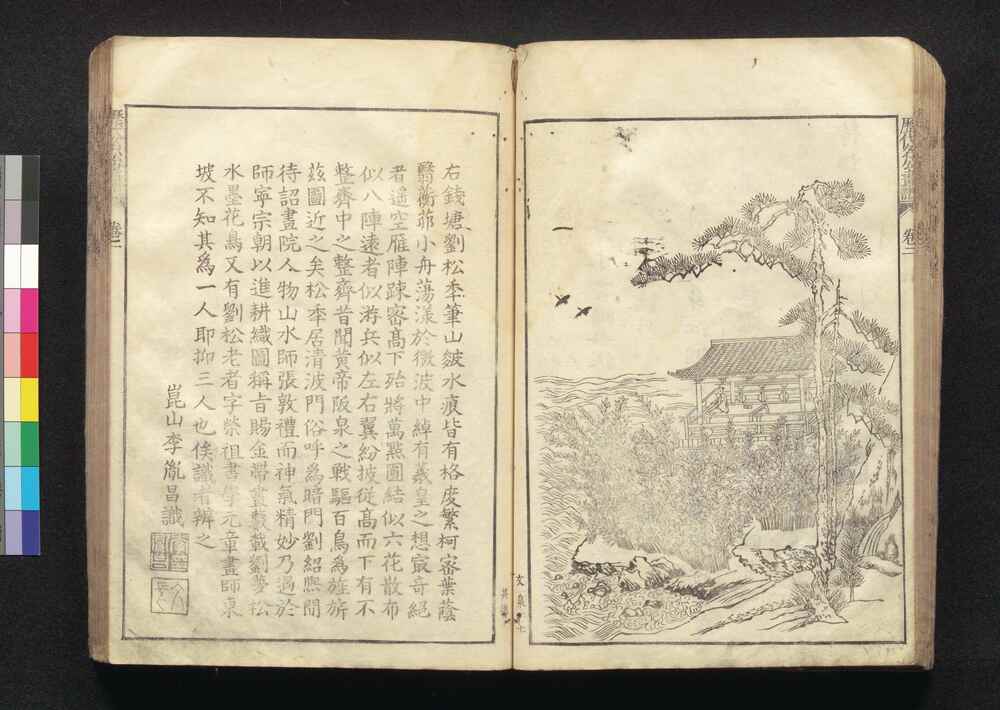 右錢塘劉松年筆山皴水痕皆有格度繁柯密葉蔭
翳蘅茆小舟蕩漾於微波中綽有羲皇之想㝡奇絕
者遥空雁陣踈密髙下殆將萬㸃團結似六花散布
似八陣遠者似游兵似左右翼紛披從髙而下有不
整齊中之整齊昔聞黄帝阪泉之戰驅百鳥爲旌旂
兹圖近之矣松年居清波門俗呼爲暗門劉紹熈間
待詔畫院人物山水師張敦禮而神氣精妙乃過於
師寧宗朝以進耕織圖稱旨賜金帶畫載劉夢松
水墨花鳥又有劉松老者字榮祖書學元章畫師東
坡不知其爲一人耶抑三人也俟識者辨之
崑山李胤昌識
卷二